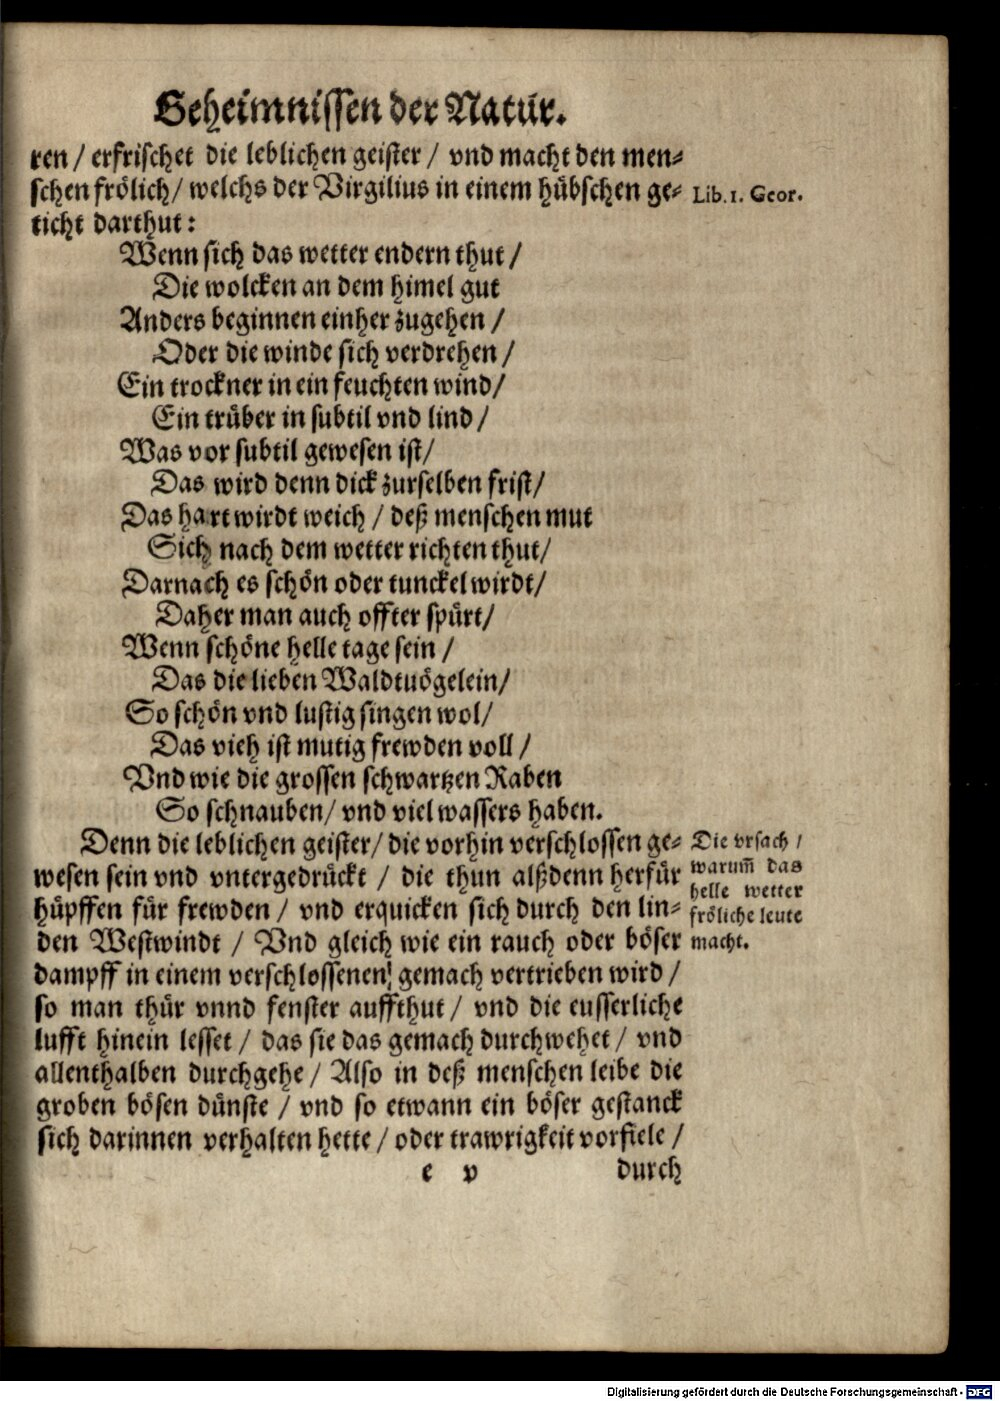 Geheimnissen der Natur.
ren / erfrischet die leblichen geister / vnd macht den men⸗
schen frölich / welchs der Virgilius in einem hübschen ge⸗
Lib. 1. Geor.
ticht darthut:
Wenn sich das wetter endern thut /
Die wolcken an dem himel gut
Anders beginnen einher zugehen /
Oder die winde sich verdrehen /
Ein trockner in ein feuchten wind /
Ein trüber in subtil vnd lind /
Was vor subtil gewesen ist /
Das wird denn dick zurselben frist /
Das hart wirdt weich / deß menschen mut
Sich nach dem wetter richten thut /
Darnach es schön oder tunckel wirdt /
Daher man auch offter spürt /
Wenn schöne helle tage sein /
Das die lieben Waldtuögelein /
So schön vnd lustig singen wol /
Das vieh ist mutig frewden voll /
Vnd wie die grossen schwartzen Raben
So schnauben / vnd viel wassers haben.
Denn die leblichen geister / die vorhin verschlossen ge⸗
wesen sein vnd vntergedrückt / die thun alßdenn herfür
hüpffen für frewden / vnd erquicken sich durch den lin⸗
den Westwindt / Vnd gleich wie ein rauch oder böser
dampff in einem verschlossenen gemach vertrieben wird /
so man thür vnnd fenster auffthut / vnd die eusserliche
lufft hinein lesset / das sie das gemach durchwehet / vnd
allenthalben durchgehe / Also in deß menschen leibe die
groben bösen dünste / vnd so etwann ein böser gestanck
sich darinnen verhalten hette / oder trawrigkeit vorfiele /
Die vrsach /
warum̃ das
helle wetter
fröliche leute
macht.
e v
durch
Digitalisierung gefördert durch die Deutsche Forschungsgemeinschaft - DFG